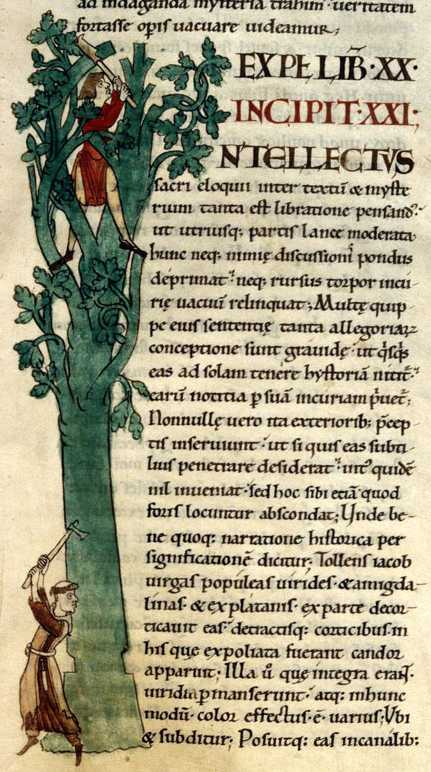 ad indaganda mysteria trahim᷑ veritatem
fortasse opis vacuare videamur;
EXPL̅ LIB̅·XX·
INCIPIT·XXI;
NTELLECTVS
sacri eloquii inter textū & myste
rium tanta est libratione pensand᷒·
ut utriusq; partis lance moderata
hunc neq; nimię discussioni pondus
deprimat· neq; rursus torpor incu
rię vacuū relinquat; Multę quip
pe eius sententię tanta allegoriaꝝ
conceptione sunt gravidę· ut q̇sq̇s
eas ad solam tenere hystoriā nitit᷑·
earū notitia ꝑ suā incuriam p̄uet᷑;
Nonnullę vero ita exteriorib; p̄cep
tis inserviunt· ut si quis eas subti
lius penetrare desiderat· int᷒ quidē
nil inveniat· sed hoc sibi etiā quod
foris locuntur abscondat; Unde be
ne quoq; narratione historica per
significationē dicitur; Tollens iacob
virgas populeas virides· & amigda
linas· & ex platanis· ex parte decor
ticavit eas· detractisq; corticibus in
his quę expoliata fuerant candor
apparuit; Illa ů quę integra erant·
viridia ꝑmanserunt· atq; in hunc
modū· color effectus·ē· varius; Ubi
& subditur; Posuitq; eas in canalib;